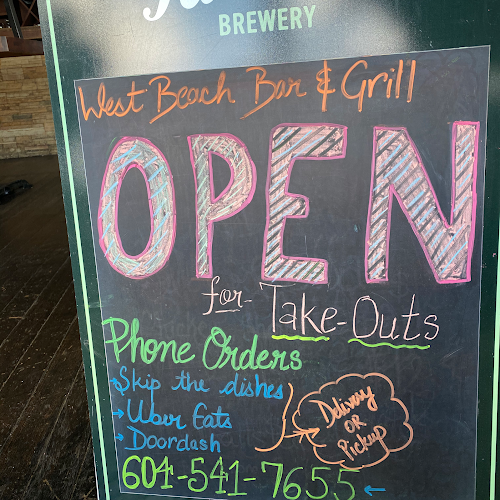 BREWERY
West Beach Bar & Grill
OPEN
for Take-Outs
Phone Orders
Skip the dishes
Uber Eats
Doordash
Delivery
OR
Pickup
604-541-7655